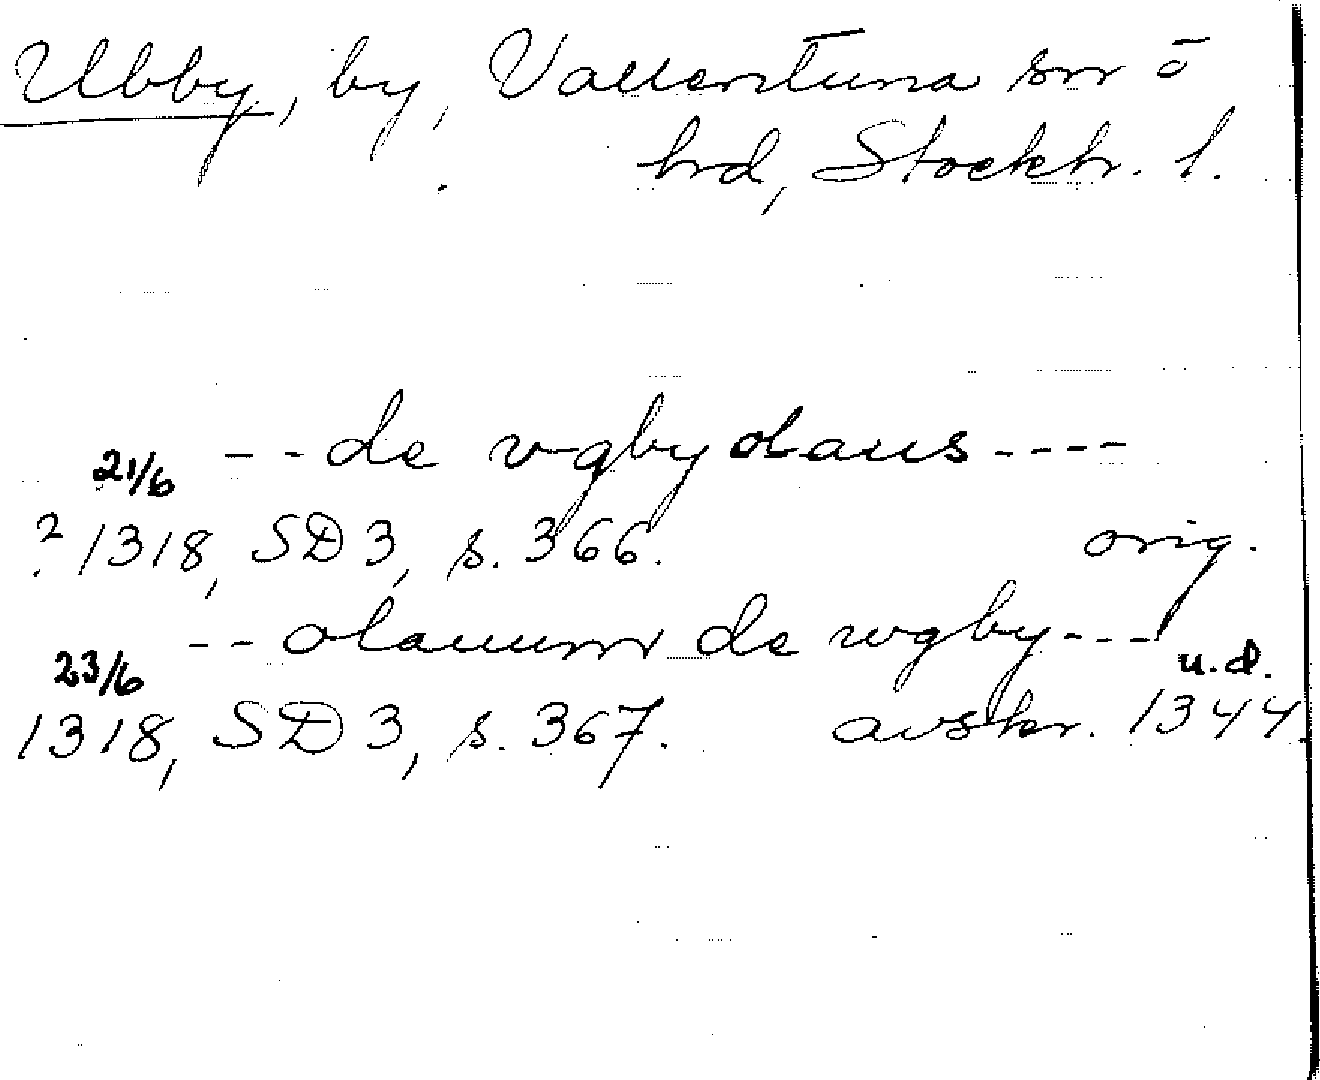 Ubby, by, Vallentuna sn o
hrd, Stockh. l.
21/6 -- de vgby olaus ----
? 1318, SD 3, s. 366. orig.
23/6 -- olauum de wgby --- u.d.
1318, SD 3, s. 367. avskr. 1344.